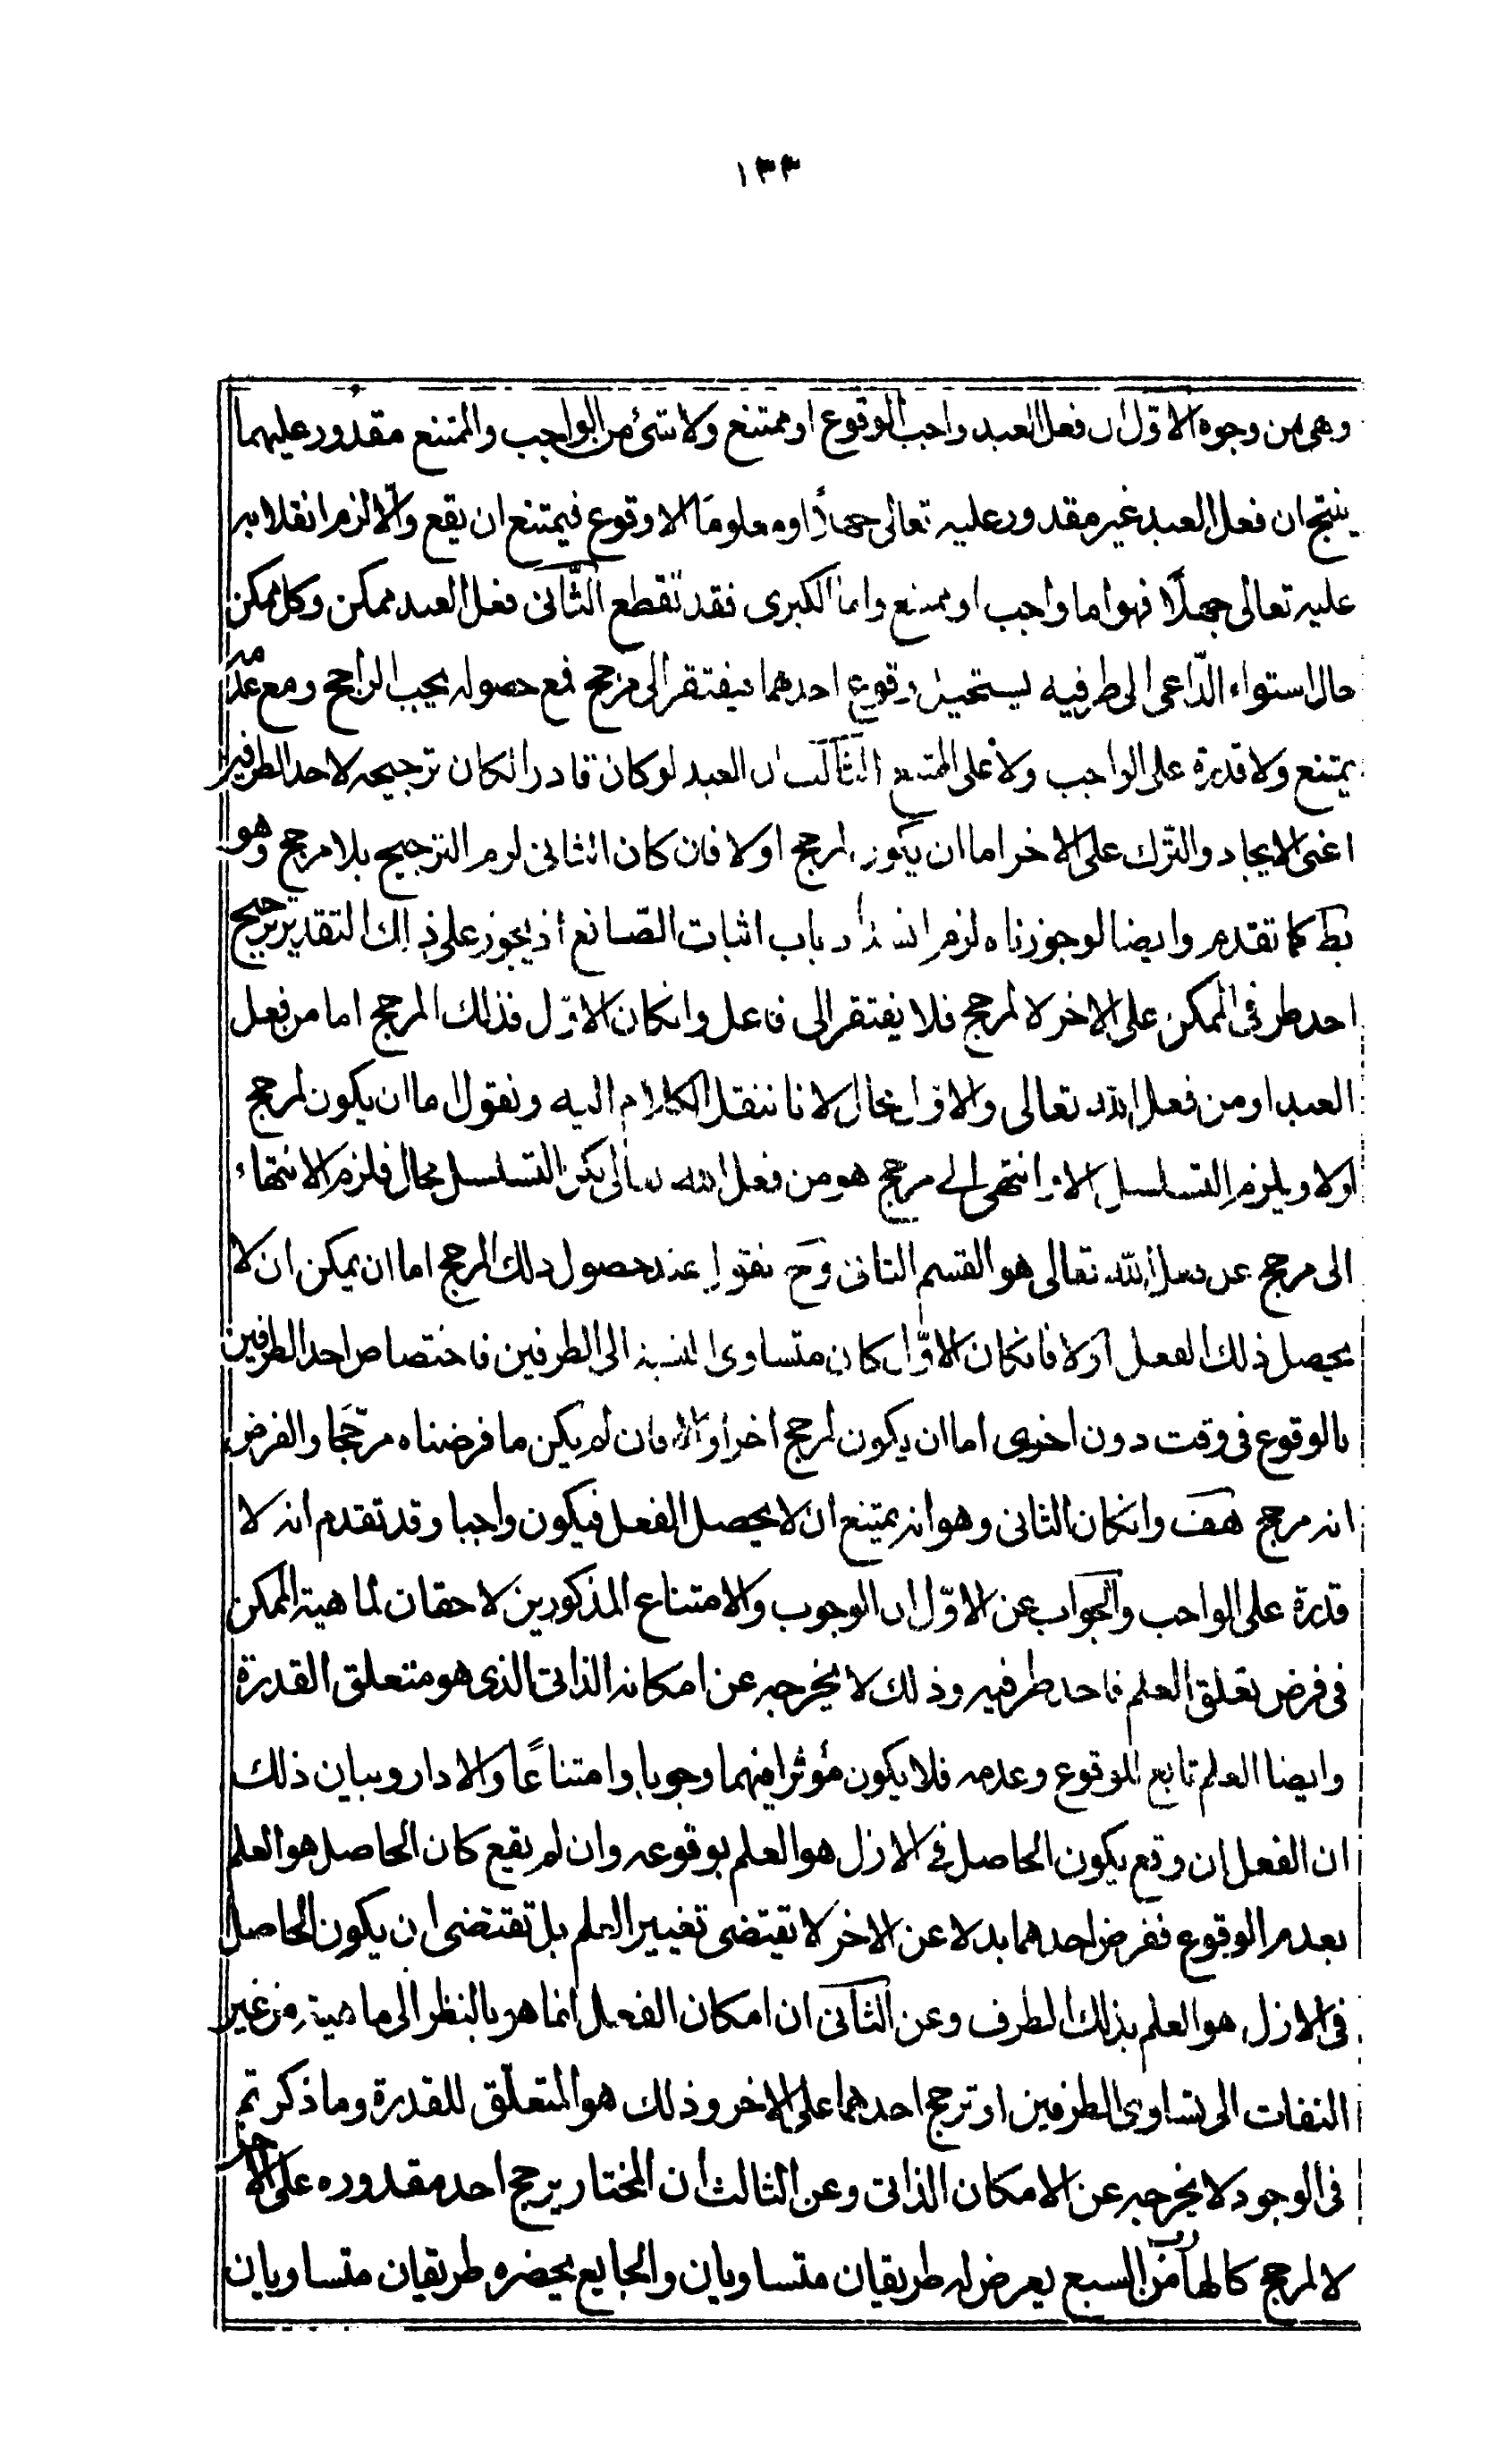 ١٣٣
وهى من وجوه الاوّل ان فعل العبد واجب الوقوع او ممتنع ولا شئ من الواجب والممتنع مقدور عليهما
ينتج ان فعل العبد غير مقدور عليه تعالى جهلاً او معلومًا لا وقوع فيمتنع ان يقع والّا لزم انقلابه
عليه تعالى جهلًا فهو اما واجب او ممتنع واما الكبرى فقد تقطع الثّانى فعل العبد ممكن وكل ممكن
حال استواء الدّاعى الى طرفيه يستحيل وقوع احدهما فيفتقر الى مرجح فمع حصوله يجب الراجح ومع عدمه
يمتنع ولا قدرة على الواجب ولا على الممتنع الثالث ان العبد لو كان قادرا لكان ترجيحه لاحد الطرفين
اعنى الايجاد والتّرك على الاخر اما ان يكون لمرجح اولا فان كان الثانى لزم الترجيح بلا مرجح وهو
بط كما تقدم وايضا لو جوزناه لزم انسداد باب اثبات الصّانع اذ يجوز على ذلك التقدير ترجيح
احد طرفى الممكن على الاخر لا لمرجح فلا يفتقر الى فاعل وانكان الاوّل فذلك المرجح اما من فعل
العبد او من فعل الله تعالى والاول محال لانا ننقل الكلام اليه ونقول اما ان يكون لمرجح
اولا ويلزم التسلسل الا وانتهى الى مرجح هو من فعل الله تعالى لكن التسلسل محال فلزم الانتهاء
الى مرجح عن فعل الله تعالى هو القسم الثانى وح نقول عند حصول ذلك المرجح اما ان يمكن ان لا
يحصل ذلك الفعل اولا فانكان الاوّل كان متساوى النسبة الى الطرفين فاختصاص احد الطرفين
بالوقوع فى وقت دون اخرى اما ان يكون لمرجح اخر اولا فان لم يكن ما فرضناه مرجّحًا والفرض
انه مرجح هف وانكان الثانى وهو انه يمتنع ان لا يحصل الفعل فيكون واجبا وقد تقدم انه لا
قدرة على الواجب والجواب عن الاوّل ان الوجوب والامتناع المذكورين لاحقان لماهية الممكن
فى فرض تعلق العلم باحد طرفيه وذلك لا يخرجه عن امكانه الذاتى الذى هو متعلق القدرة
وايضا العلم تابع للوقوع وعدمه فلا يكون مؤثرا فيهما وجوبا وامتناعًا والا دار وبيان ذلك
ان الفعل ان وقع يكون الحاصل فى الازل هو العلم بوقوعه وان لم يقع كان الحاصل هو العلم
بعدم الوقوع ففرض احدهما بدلا عن الاخر لا تقتضى تغيير العلم بل تقتضى ان يكون الحاصل
فى الازل هو العلم بذلك الطرف وعن الثانى ان امكان الفعل انما هو بالنظر الى ماهيته من غير
التفات الى تساوى الطرفين او ترجح احدهما على الاخر وذلك هو المتعلّق للقدرة وما ذكرتم
فى الوجود لا يخرجه عن الامكان الذاتى وعن الثالث ان المختار يرجح احد مقدوره على الاخر
لا لمرجح كالهارب من السبع يعرض له طريقان متساويان والجايع يحضره طريقان متساويان